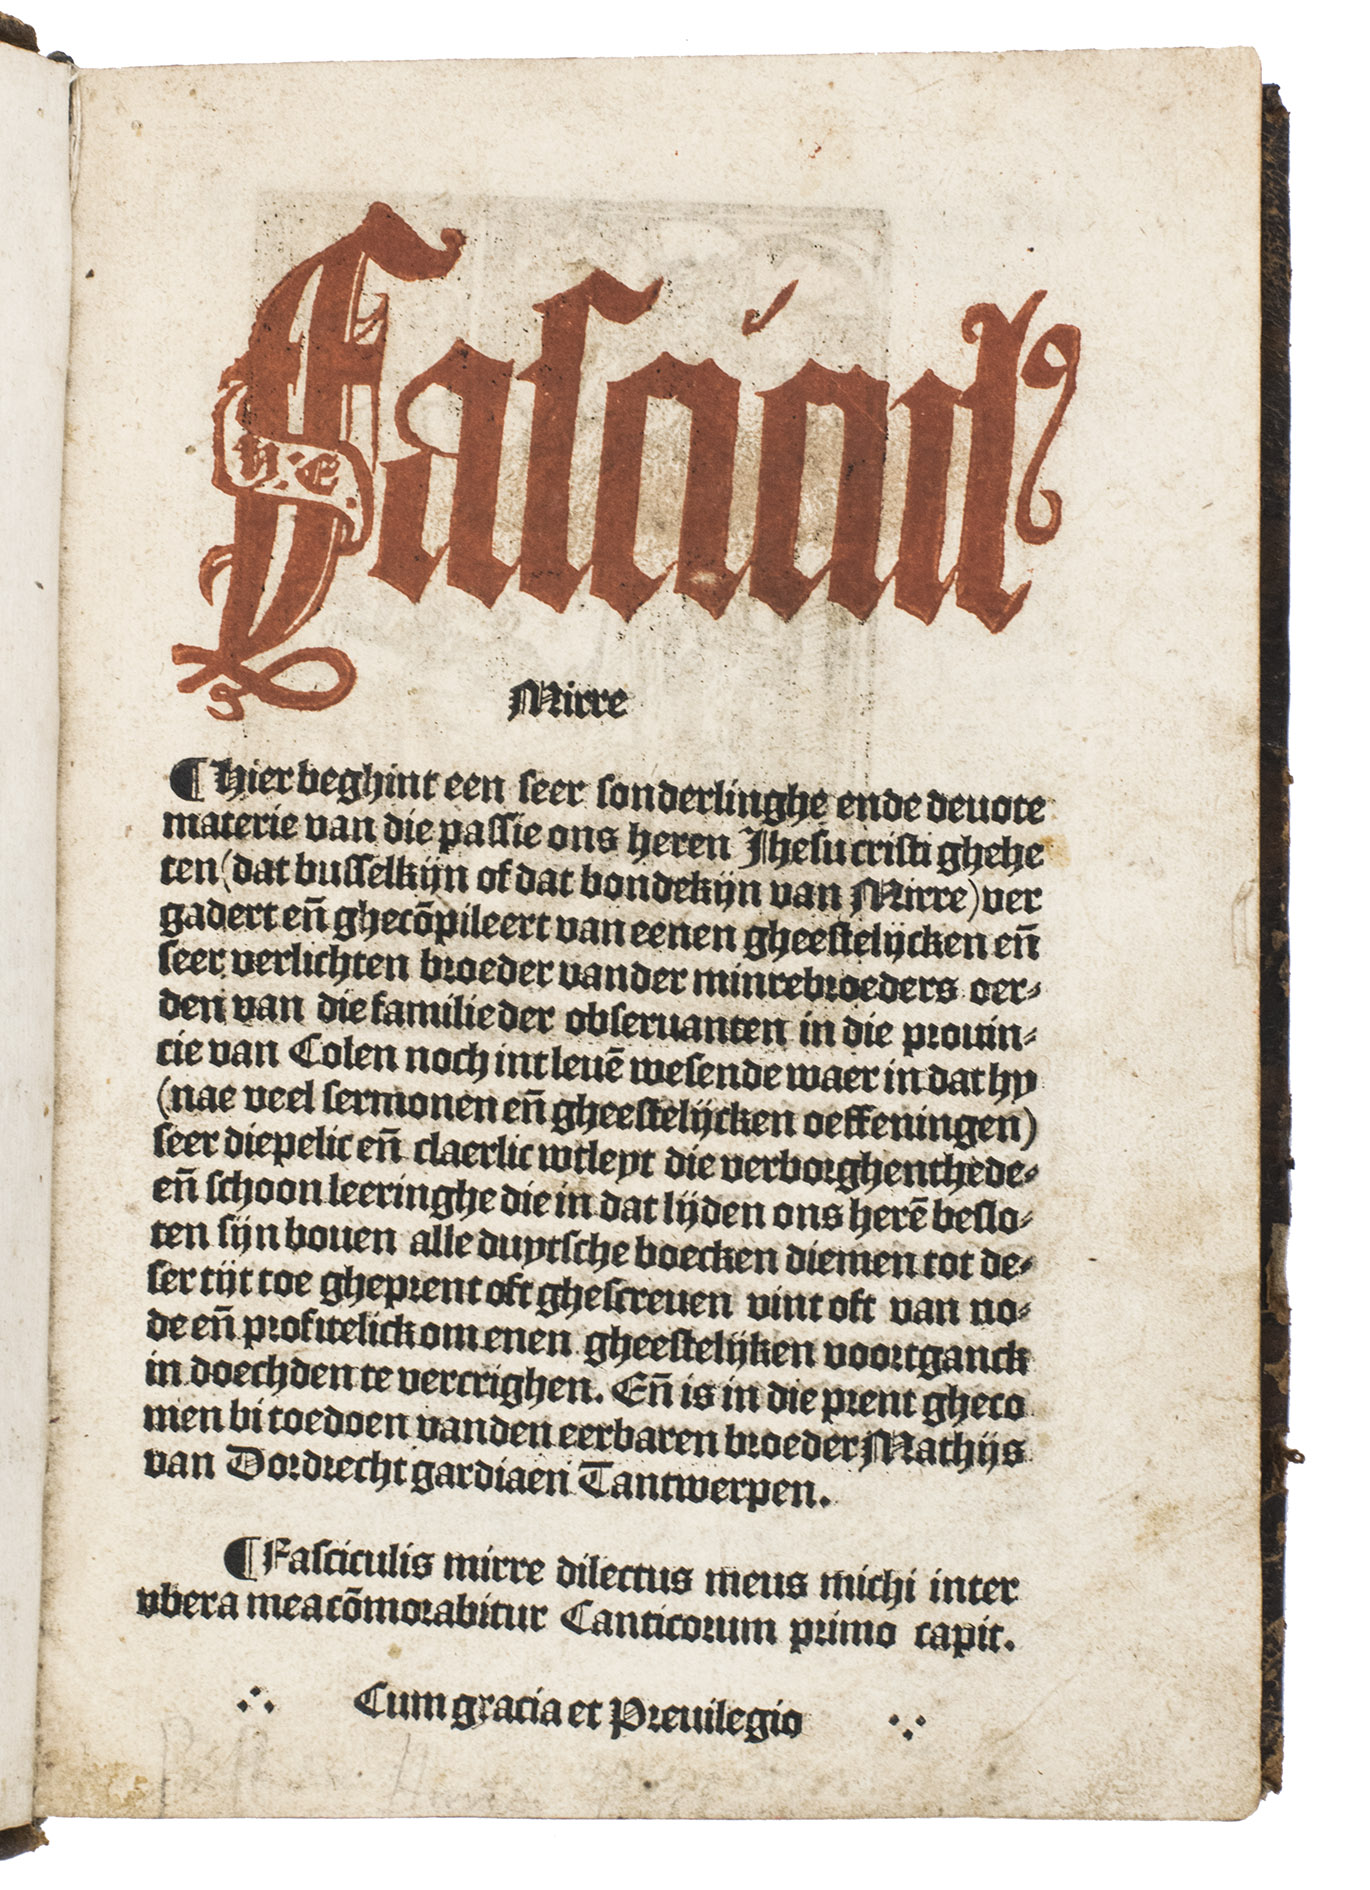 Fascicul⁹
H. E.
Mirre
¶ Hier beghint een seer sonderlinghe ende deuote
materie van die passie ons heren Jhesu cristi ghehe
ten (dat busselkijn of dat bondekijn van Mirre) ver
gadert en̄ ghecōpileert van eenen gheestelijcken en̄
seer verlichten broeder vander minrebroeders oer⸗
den van die familie der obseruanten in die prouin⸗
cie van Colen noch int leuē wesende waer in dat hy
(nae veel sermonen en̄ gheestelijcken oeffeningen)
seer diepelic en̄ claerlic wtleyt die verborghenthede⸗
en̄ schoon leeringhe die in dat lijden ons herē beslo⸗
ten sijn bouen alle duytsche boecken diemen tot de⸗
ser tijt toe gheprent oft ghescreuen vint oft van no⸗
de en̄ profitelick om enen gheestelijken voortganck
in doechden te vercrighen. En̄ is in die prent gheco
men bi toedoen vanden eerbaren broeder Mathijs
van Dordrecht gardiaen Tantwerpen.
¶ Fasciculis mirre dilectus meus michi inter
vbera mea cōmorabitur Canticorum primo capit.
Cum gracia et Preuilegio